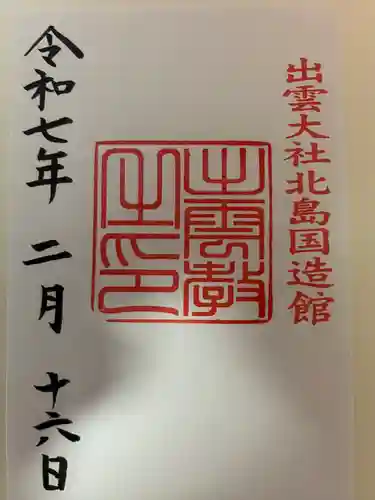 出雲大社北島国造館
出雲教之印
令和七年 二月 十六日